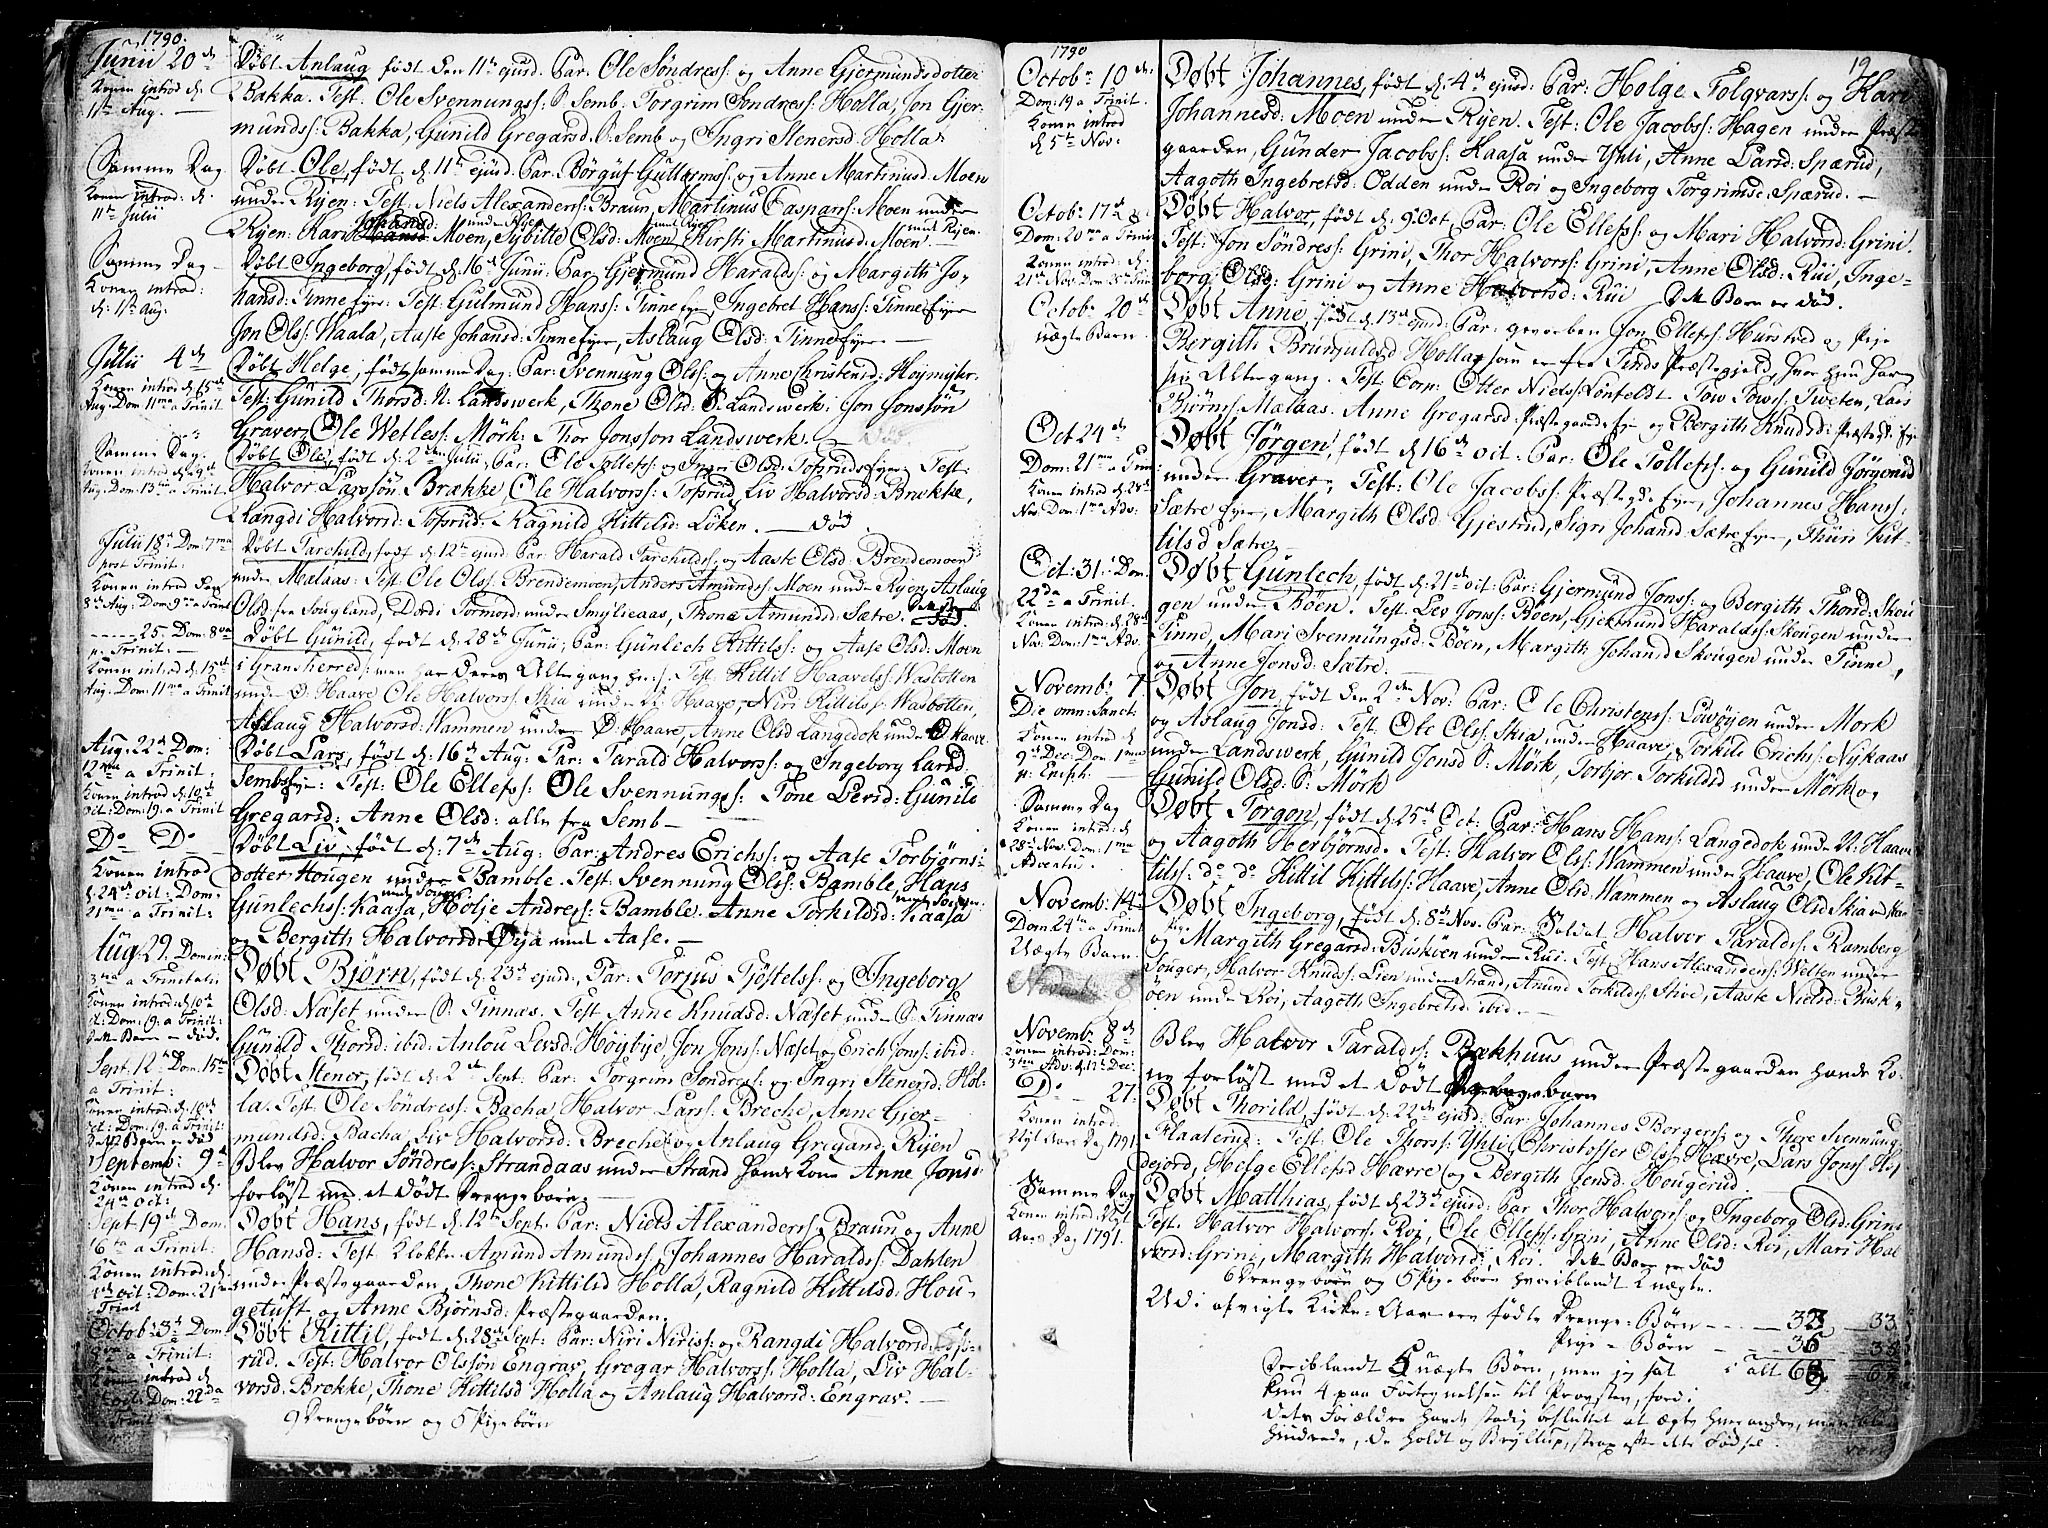 1790.
Junii 20 d.
Konen introd d.
11te Aug.
Døbt Anlaug, født den 11te ejusd. Par: Ole Søndress: og Anne Gjermundsdotter
Bakka. Test. Ole Svennungs: S. Semb. Torgrim Søndress: Holla, Jon Gjer-
munds: Bakka, Gunild Gregarsd. S: Semb og Ingri Stenersd: Holla.
Samme Dag
Konen introd: d.
11te Julii
Døbt Ole, født d. 11te ejusd. Par: Børguf Guttormss: og Anne Martinusd: Moen
under Ryen. Test: Niels Alexanders: Braun, Martinus Caspars: Moen under
Ryen. Kari Moen, Sybille Olsd: Moen Kirsti Martinusd: Moen
Samme Dag
Konen introd:
d: 1te Aug:
Døbt Ingeborg, født d. 16 d. Junii: Par: Gjermund Haralds: og Margith Jo-
hansd: Tinne eyer: Test: Gulmund Hanss: Tinne eyer, Ingebret Hanss: Tinne Eyer
Jon Olss: Waala, Aaste Johansd: Tinne eyer, Aslaug Olsd: Tinne eyer.
Julii 4 de
Konen introd d. 15 de
Aug: Dom 11ma a Trinit
Døbt Helge, født samme Dag: Par: Svennung Olss: og Anne Christensd: Høymyhr.
Test: Gunild Thorsd: N. Landswerk, Thone Olsd: S. Landswerk: Jon Jonssøn
Graver, Ole Wetless: Mørk: Thor Jonsson Landswerk. Død.
Samme Dag.
Konen introd d 29de
Aug: Dom: 13ma a Trinit
Døbt Ole, født d. 2den Julii, Par: Ole Tolless: og Ingri Olsd: Tossrud eyer, Test:
Halvor Larssøn Brække, Ole Halvorss: Tossrud, Liv Halvorsd: Brække,
Rangdi Halvorsd: Tossrud. Ragnild Kittilsd: Løken. — død
Julii 18 d Dom: 7ma
post Trinit:
Konen introd
8de Aug: Dom 9na a Trinit
Døbt Tarchild, født d. 12te ejusd Par: Harald Tarchilds: og Aaste Olsd: Brendemoen
under Malaas: Test: Ole Olss: Brendemoen, Anders Amunds: Moen under Ryen, Aslaug
Olsd: fra Sougland, Dordi Tormod: under Smylieaas, Thone Amundsd: Sætre.
25. Dom: 8va
p. Trinit.
Konen introd d. 15 de
Aug: Dom: 11ma a Trinit
Døbt Gunild, født d. 28 de Junii, Par: Gunlech Kittilss: og Aase Olsd: Moen
i Gransherred: men har deres Altergang her: Test: Kittil Haavelss: Wasbotten
under Ø: Haave Ole Halvors: Skia under N: Haave, Niri Kittilss: Wasbotten,
Aslaug Halvorsd: Wammen under Ø: Haave, Anne Olsd Langedok under Ø Haave.
Aug: 22 d Dom:
12ma a Trinit:
Konen introd d. 10de
Oct: Dom: 19. a Trinit
Døbt Lars, født d: 16 d. Aug: Par: Tarald Halvorss: og Ingeborg Larsd:
Sembseyer: Test: Ole Elless: Ole Svennungs: Tone Levsd: Gunild
Gregarsd: Anne Olsd: alle fra Semb —
Do Do
Konen introd
d: 24 de Oct: Dom:
21ma a Trinit:
Døbt Liv, født d: 7 de Aug: Par: Andres Erichss: og Aase Torbjørns:
dotter Hougen under Bamble. Test: Svennung Olss: Bamble, Hans
Gunlechss: Kaasa, Holje Andress: Bamble. Anne Torkildsd: Kaasa
og Bergith Halvorsd: Øya med Aase.
Aug: 29. Domin:
3tia a Trinitatis
Konen introd d: 10 de
Oct: Dom: 19. a Trinit:
dette Barn — død.
Døbt Bjørn, født d. 23 d ejusd, Par: Torjus Tjøstels: og Ingeborg
Olsd: Næset under S: Tinnæs. Test Anne Knudsd: Næset under S: Tinnæs
Gunild Thorsd: ibid: Anlou Levsd: Høybye, Jon Jonss: Næset og Erich Jonss: ibid:
Sept. 12 te Dom: 15 ta
a Trinit:
Konen introd: d. 10de
Oct: Dom: 19. a Trinit:
dette Barn — død
Døbt Stener, født d: 2 de Sept: Par: Torgrim Søndress: og Ingri Stenersd: Hol-
la. Test: Ole Søndress: Bacha, Halvor Larss: Breche, Anne Gjer-
mundsd: Bacha, Liv Halvorsd: Breche og Anlaug Gregarsd, Ryen
Septemb: 9 d
Konen introd d.
24 de Oct:
Blev Halvor Søndress: Strandaas under Strand hands Kone Anne Jonsd
forløst med et dødt Drengebarn.
Sept: 19 de Dom:
16 ta a Trinit:
Konen introd: d.
Oct: Dom: 21ma
Trinit
Døbt Hans, født d. 12te Sept: Par: Niels Alexanders: Braun og Anne
Hansd: Test: Klokker Amund Amunds:, Johannes Haralds: Dahlen
under Præstegaarden, Thone Kittilsd Holla, Ragnild Kittilsd: Hou-
getuft, og Anne Bjørnsd: Præstegaarden.
Octob: 3 d Dom:
a Trinit:
Konen introd d
Dom: 22 da
Trinit
Døbt Kittil, født d: 28 de Sept: Par: Niri Niriss: og Rangdi Halvorsd:
rud. Test: Halvor Olssøn Engrav, Gregar Halvorss: Holla, Liv Hal-
vorsd: Brekke, Thone Kittilsd Holla og Anlaug Halvorsd: Engrav. —
9 Drengebørn og 5 Pigebørn
1790
19
Octob: 10 de
Dom: 19 a Trinit.
Konen introd
d 5te Nov:
Døbt Johannes, født d: 4 de ejusd: Par: Holge Folqvars: og Kari
Johannesd: Moen under Ryen. Test: Ole Jacobss: Hagen under Præste-
gaarden, Gunder Jacobss: Kaasa under Yhli, Anne Larsd: Spærud,
Aagoth Ingebretsd: Odden under Roi og Ingeborg Torgrimsd: Spærud. —
Octob: 17 de
Dom: 20 ma a Trinit
Konen introd: d:
21 de Nov
Døbt Halvor, født d: 9 Oct Par: Ole Elless: og Mari Halvorsd: Grini.
Test: Jon Søndress: Grini, Thor Halvorss: Grini, Anne Olsd: Rui, Inge-
borg Olsd: Grini og Anne Halvorsd: Rui dette Barn er død.
Octob: 20 de
uægte Barn
Døbt Anne, født d: 13 de ejusd: Par: gevorben Jon Elless: Hursted og Pige
Bergith Brunjulsd Holla, som er fra Tinds Præstegjeld, hvor hun haver
sin Altergang. Test: Corn: Otter Niels: Lønfeldt Tow Tows: Tveten, Lars
Bjørns: Malaas. Anne Gregarsd: Præstegaards eye og Bergith Knudsd: Præstegds: Eye
Oct 24 de
Dom: 21 ma a Trin:
Konen introd d: 28 de
Nov: Dom: 1ma Adv:
Døbt Jørgen, født d: 16 de Oct: Par: Ole Tolless: og Gunild Jørgensd
under Graver, Test: Ole Jacobss: Præstegds Eye, Johannes Hanss:
Sætre Eyer, Margith Olsd: Gjestrud, Sigri Johansd Sætre Eye, Thuri Kit-
tilsd Sætre.
Oct: 31: Dom:
22 da a Trinit.
Konen introd: d. 28 de
Nov: Dom: 1ma Adv:
Døbt Gunlech, født d: 21 de Oct: Par: Gjermund Jonss: og Bergith Thorsd: Skou
gen under Bøen. Test: Lev Jonss: Bøen, Gjermund Haralds: Skougen under
Tinne, Mari Svennungsd: Bøen, Margith Johansd Skougen under Tinne,
og Anne Jonsd: Sætre.
Novemb: 7.
Die omn: Sanct:
Konen introd d
9 de Dec Dom 1ma
p: Epiph:
Døbt Jon, født den 2 den Nov: Par: Ole Christenss: Lowøyen under Mørk
og Aslaug Jonsd: Test: Ole Olss: Skia, under Haave, Torkild Erichs: Nykaas
under Landswerk, Gunild Jonsd S: Mørk, Torbjør Torkildsd under Mørk og
Gunild Olsd: S: Mørk
Samme Dag
Konen introd: d
28 de Nov: Dom: 1ma
Adventus.
Døbt Torgon, født d: 25 de Oct: Par: Hans Hanss: Langedok under N: Haave
og Aagoth Herbjørnsd. Test: Halvor Olss: Wammen under Haave, Ole Kit-
tilss: do do Kittil Kittelss: Haave, Anne Olsd Wammen og Aslaug Olsd Skia
Novemb: 14 de
Dom 24 ta a Trinit
Uægte Barn.
Døbt Ingeborg, født d: 8 de Nov. Par: Soldat Halvor Taralds: Ramberg
og Pige Margith Gregarsd: Buskøen under Rui. Test: Hans Alexanders: Welten under
Souger, Halvor Knuds: Lien under Strand, Amund Torkilds: Stive, Aaste Nielsd: Busk-
øen under Roi, Aagoth Ingebretsd: ibid. —
Novemb: 8 de
Konen introd: Dom:
3tia Adv: d. 11te Dec:
Blev Halvor Taralds: Bækhuus under Præstegaarden hands Ko-
ne forløst med et dødt Pigebarn
Do — 27.
Konen introd
Nyt Aars Dag 1791
Døbt Thorild, født d: 22 de ejusd: Par: Johannes Borgerss: og Thore Svennungsd
Flaaterud: Test: Ole Thorss: Yhli, Christoffer Olss: Hævre, Lars Jonss: Høy
dejord, Helge Ellefsd Hævre og Bergith Jensd: Hougerud.
Samme Dag
Konen introd: Nyt
Aars Dag 1791.
Døbt Matthias, født d: 23 de ejusd: Par: Thor Halvors: og Ingeborg Olsd: Grini
Test. Halvor Halvors: Roi, Ole Elless: Grini, Anne Olsd: Roi, Mari Hal
vorsd: Grini, Margith Halvorsd:, Roi. dette Barn er død
6 Drengebørn og 5 Pigebørn hvoriblandt 2 uægte.
Udi afvigte Kirke-Aar ere fødte Drenge-Børn - - - 33 33
Pige-Børn - - - 36
i alt 69
Deriblandt 5 uægte Børn, men jeg sat
kun 4 paa Fortegnelsen til Provsten, fordi
dets Forældre havde stadig besluttet at ægte hverandre, men blev
hindrede, de holdt og Bryllup, strax efter dets Fødsel.